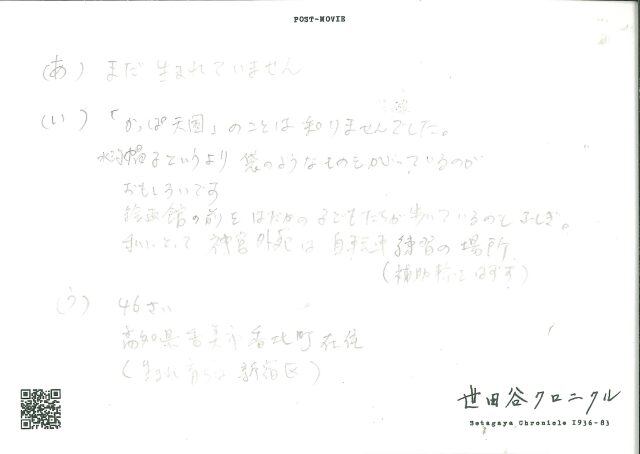 POST-MOVIE
(あ) まだ 生まれていません
(い) 「かっぱ天国」のことは 知りませんでした。
水泳帽子というより 袋のようなものをかぶっているのが
おもしろいです
絵画館の前を はだかの子どもたちが歩いているのも ふしぎ。
私にとって 神宮外苑は 自転車練習の場所
(補助輪をはずす)
(う) 46さい
高知県香美市香北町在住
(生まれ育ちは 新宿区)
世田谷クロニクル
Setagaya Chronicle 1936-83